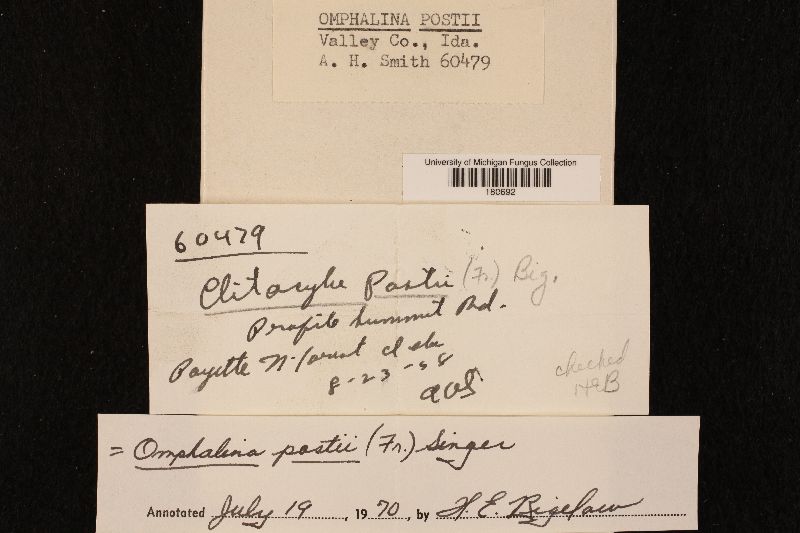 OMPHALINA POSTII
Valley Co., Ida.
A. H. Smith 60479
University of Michigan Fungus Collection
180692
60479
Clitocybe Postii (Fr.) Big.
Profile Summit Rd.
Payette N. forest Idaho
8-23-58
AHS
checked
HEB
= Omphalina postii (Fr.) Singer
Annotated July 19, 1970, by H. E. Bigelow